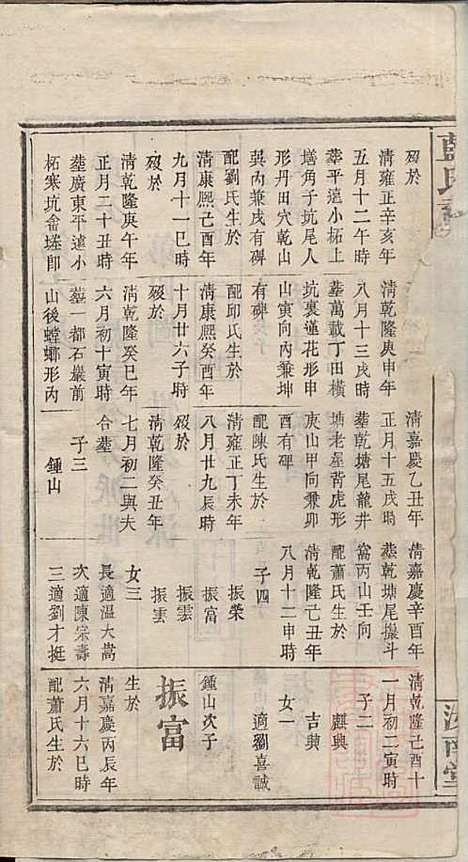 藍氏
汝南堂
歿於
清雍正辛亥年
五月十二午時
葬平遠小柘上
墖角子坑尾人
形丹田穴乾山
巽內兼戌有碑
配劉氏生於
清康熙己酉年
九月十一巳時
歿於
清乾隆庚午年
正月二十丑時
葬廣東平遠小
柘寒坑畲墘卽
清乾隆庚申年
八月十三戌時
葬萬載丁田橫
坑裏蓮花形申
山寅向內兼坤
有碑
配邱氏生於
清康熙癸酉年
十月廿六子時
歿於
清乾隆癸巳年
六月初十寅時
葬一都石巖前
山後螳螂形內
清嘉慶乙丑年
正月十五戌時
葬乾塘尾龍井
塘老屋背虎形
庚山甲向兼卯
酉有碑
配陳氏生於
清雍正丁未年
八月廿九辰時
歿於
清乾隆癸丑年
七月初二與夫
合葬
子三
鍾山
清嘉慶辛酉年
葬乾塘尾撮斗
窩丙山壬向
配蕭氏生於
清乾隆己丑年
八月十二申時
子四
振榮
振富
振雲
振雲
女三
長適温大嵩
次適陳宗壽
三適劉才挺
清乾隆己酉十
一月初二寅時
子二
麒興
吉興
女一
適劉喜誠
鍾山次子
振富
生於
清嘉慶丙辰年
六月十六巳時
配蕭氏生於